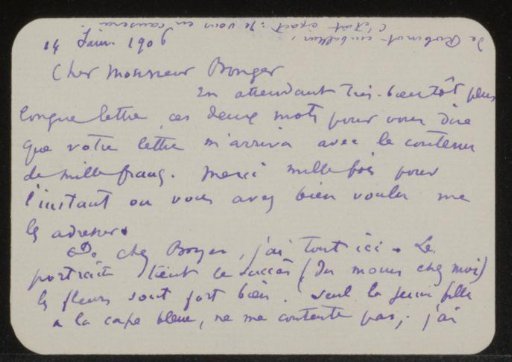 14 Juin 1906
Cher Monsieur Bonger
En attendant très-bientôt plus
longue lettre, ces deux mots pour vous dire
que votre lettre m'arriva avec le contenu
de mille francs. Merci mille fois pour
l'instant où vous avez bien voulu me
les adresser.
chez Boyer, j'ai tout ici. Le
portrait tient ce succès (du moins chez moi)
les fleurs sont fort bien. Seul la jeune fille
à la cape bleue, ne me contente pas; j'ai
c'était exact: je vous en causerai